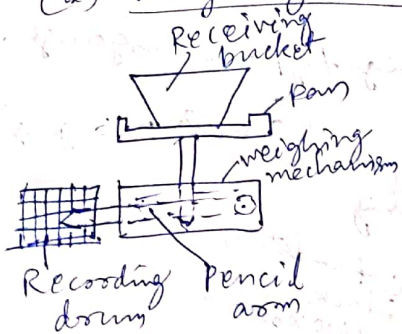 Receiving
bucket
Pan
weighing
mechanism
Recording
drum
Pencil
arm